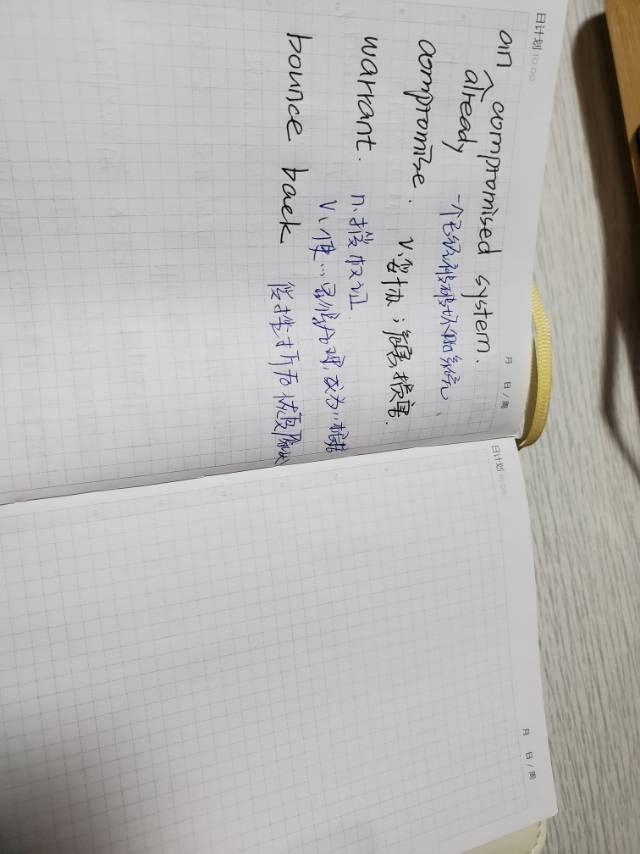 日计划 10:00 月 日/周
an compromised system.
already 一个已经被破坏的系统、
compromise. v.妥协；危害 损害.
warrant. n.授权证
v.使…显得合理,成为…根据
bounce back 受挫折后恢复
日计划 10:00 月 日/周